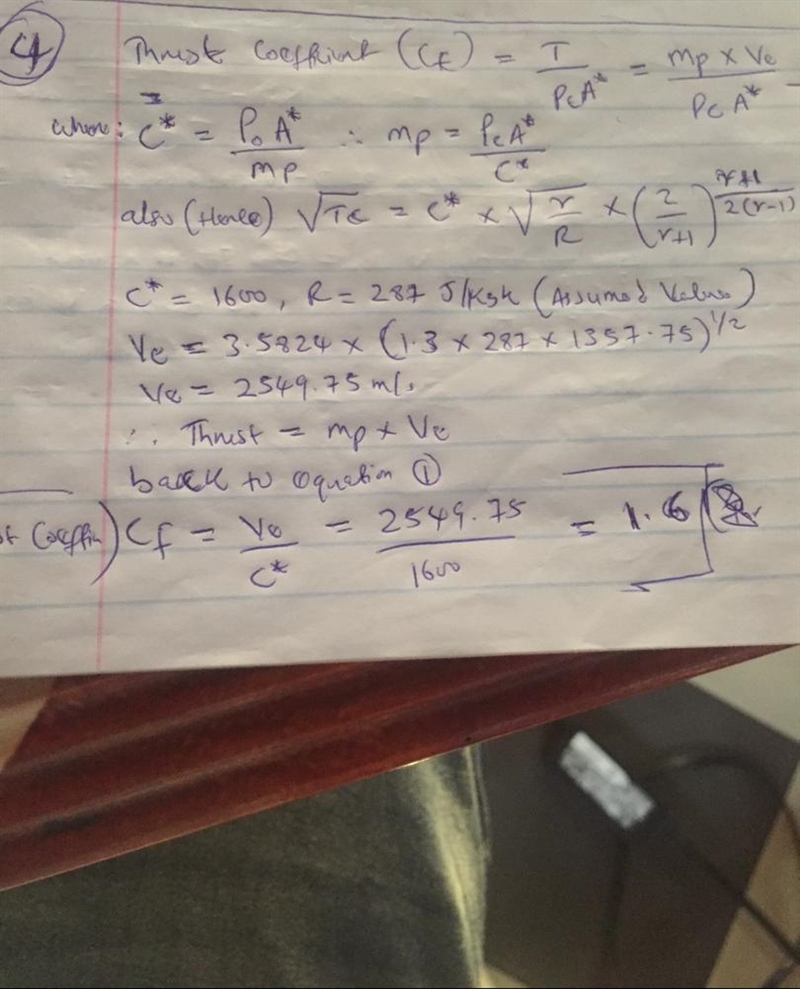 4 Thrust Coefficient (Cf) = T / PcA* = mp x Ve / Pc A*
where: C* = Po A* / mp ∴ mp = PcA* / C*
also (Hence) √Tc = C* x √(r/R) x (2/r+1)^(r+1 / 2(r-1))
C* = 1600, R = 287 J/Kgk (Assumed Values)
Ve = 3.5824 x (1.3 x 287 x 1357.75)^1/2
Ve = 2549.75 m/s
∴ Thrust = mp x Ve
back to equation ①
Cf = Ve / C* = 2549.75 / 1600 = 1.6